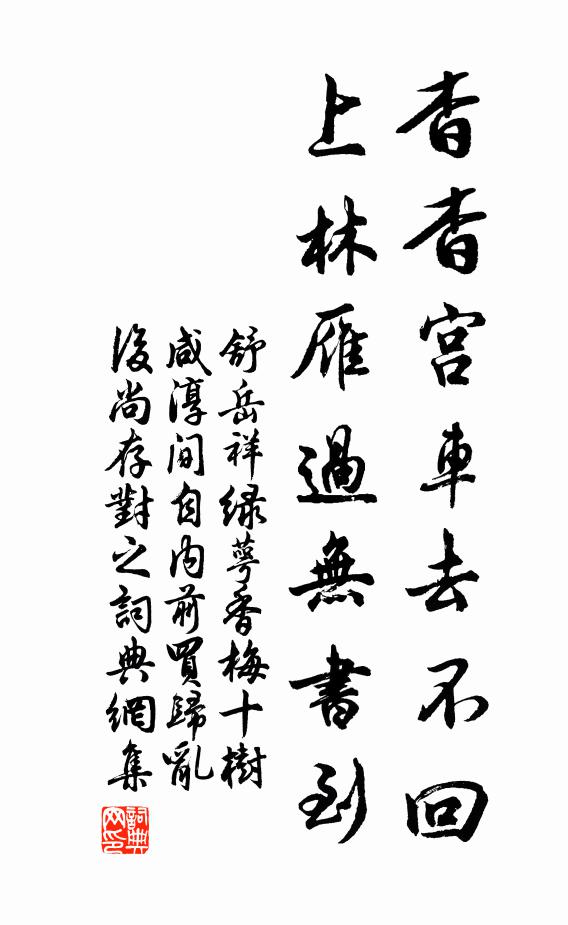 杳杳宮車去不回
上林雁過無書到
舒岳祥緑萼香梅十樹
咸淳間自内前買歸亂
後尚存對之詞典網集
詞典网印